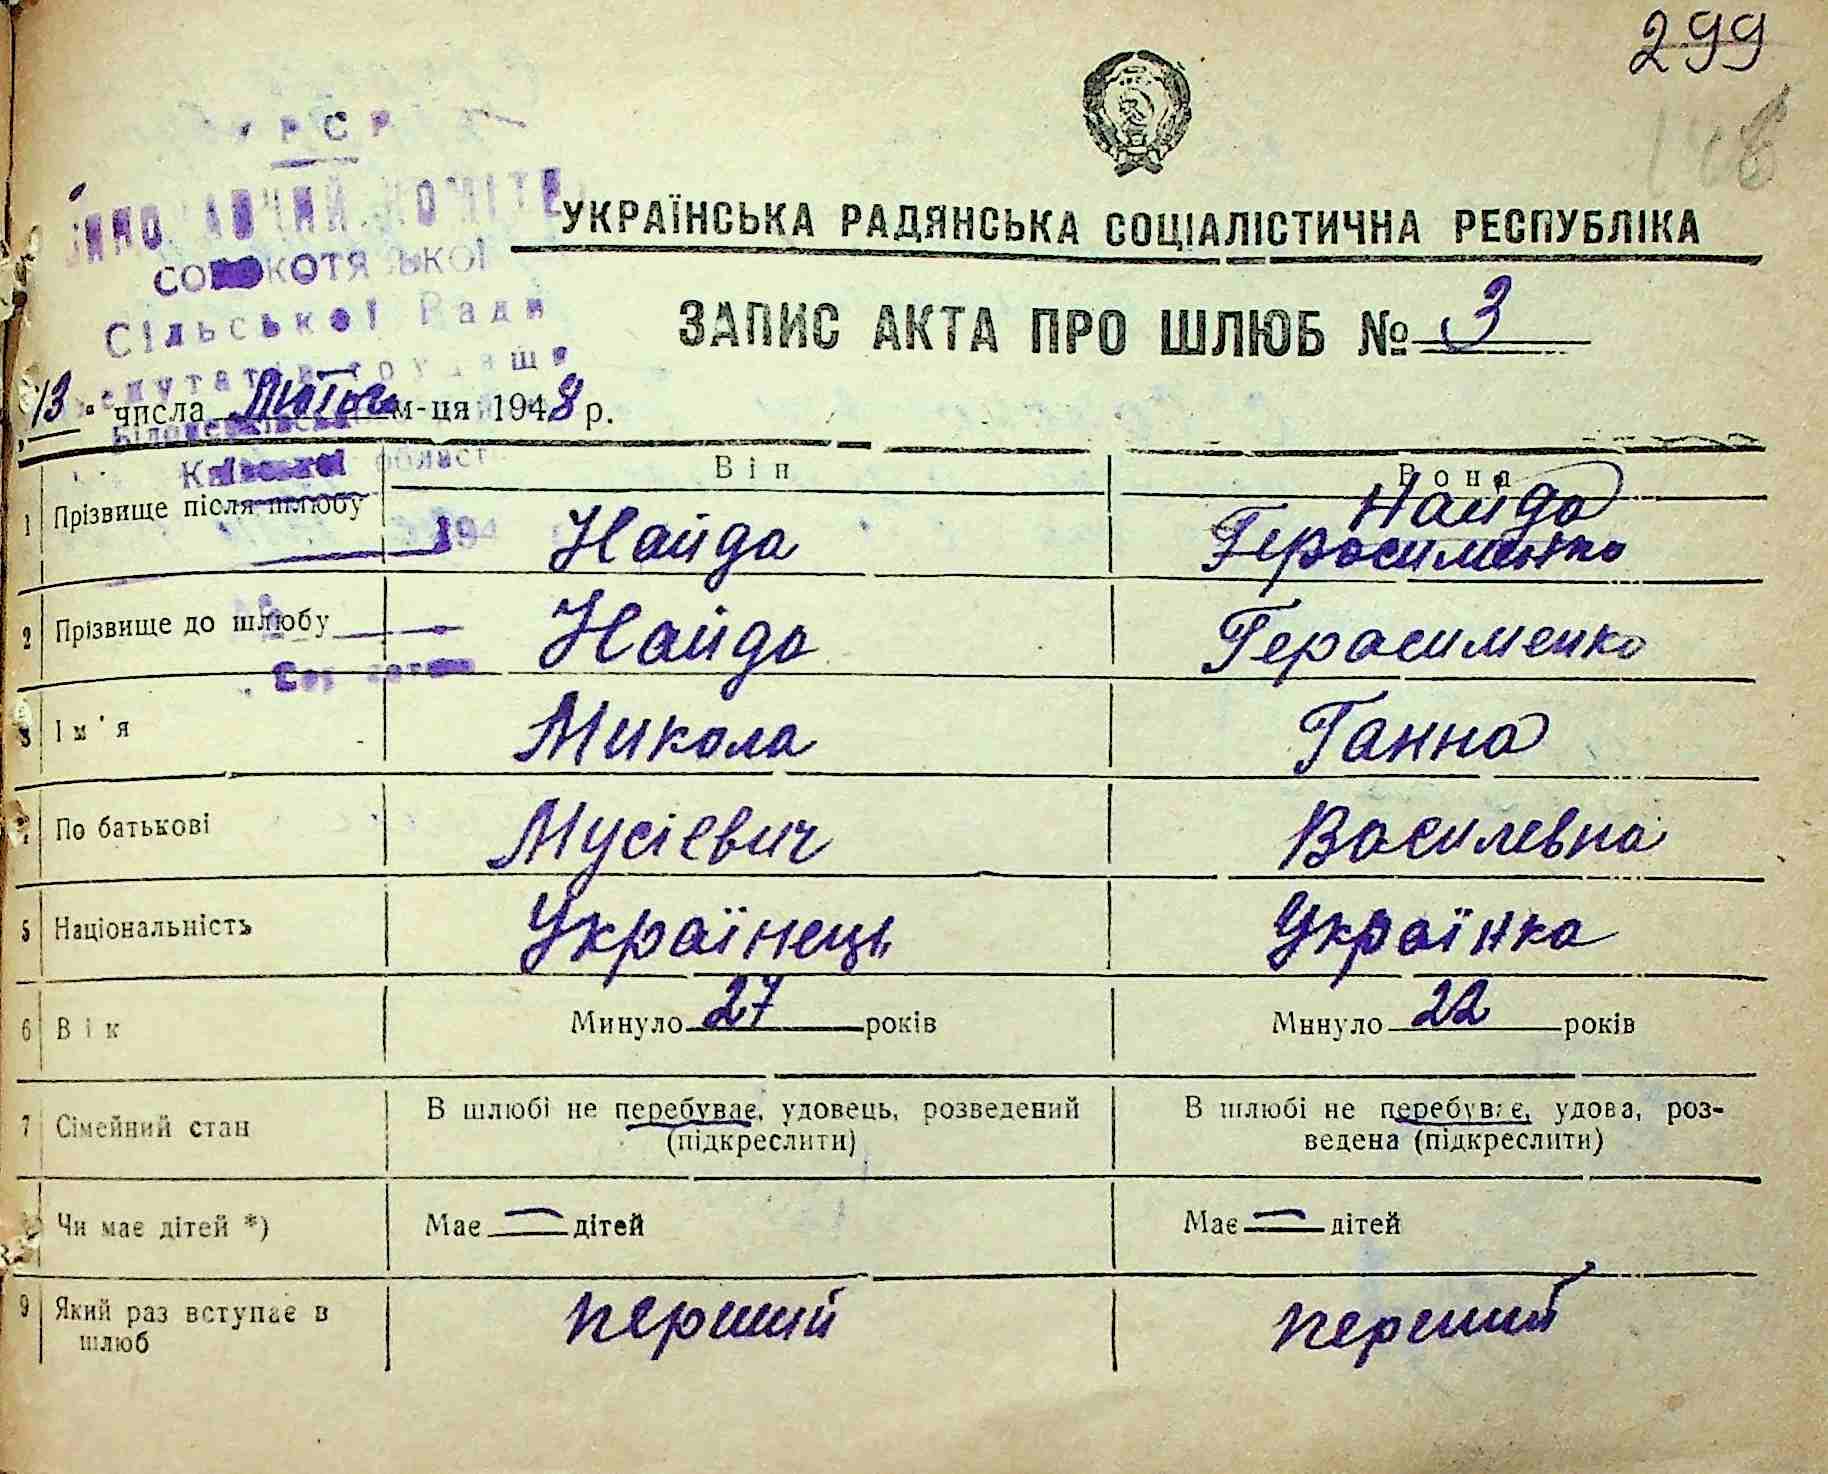 299
УРСР
ВИКОНАВЧИЙ КОМІТЕТ
УКРАЇНСЬКА РАДЯНСЬКА СОЦІАЛІСТИЧНА РЕСПУБЛІКА
Сільської Ради
ЗАПИС АКТА ПРО ШЛЮБ № 3
депутатів трудящ
13 числа Лютого м-ця 1948 р.
Київської області
Він Вона
1 Прізвище після шлюбу Найда Герасименко Найда
194
2 Прізвище до шлюбу Найда Герасименко
3 Ім'я Микола Ганна
4 По батькові Мусієвич Василевна
5 Національність Українець Українка
6 Вік Минуло 27 років Минуло 22 років
7 Сімейний стан В шлюбі не перебуває, удовець, розведений (підкреслити) В шлюбі не перебуває, удова, роз-
ведена (підкреслити)
8 Чи має дітей *) Має — дітей Має — дітей
9 Який раз вступає в шлюб перший перший